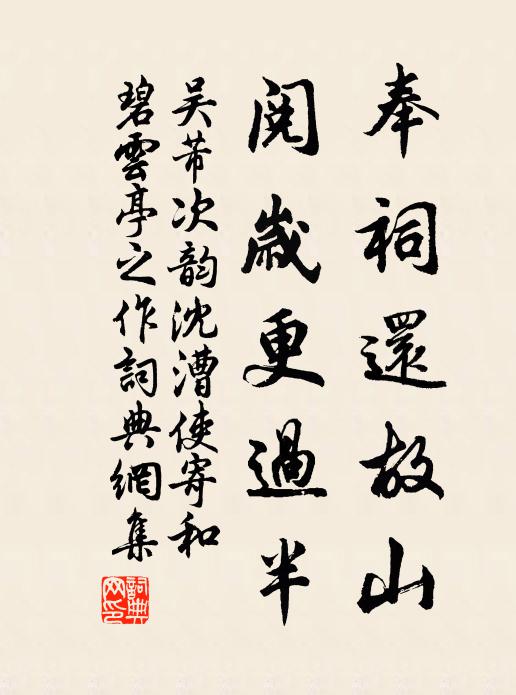 奉祠還故山
閱歲更過半
吳芾次韵沈漕使寄和
碧雲亭之作詞典網集
詞典
网印